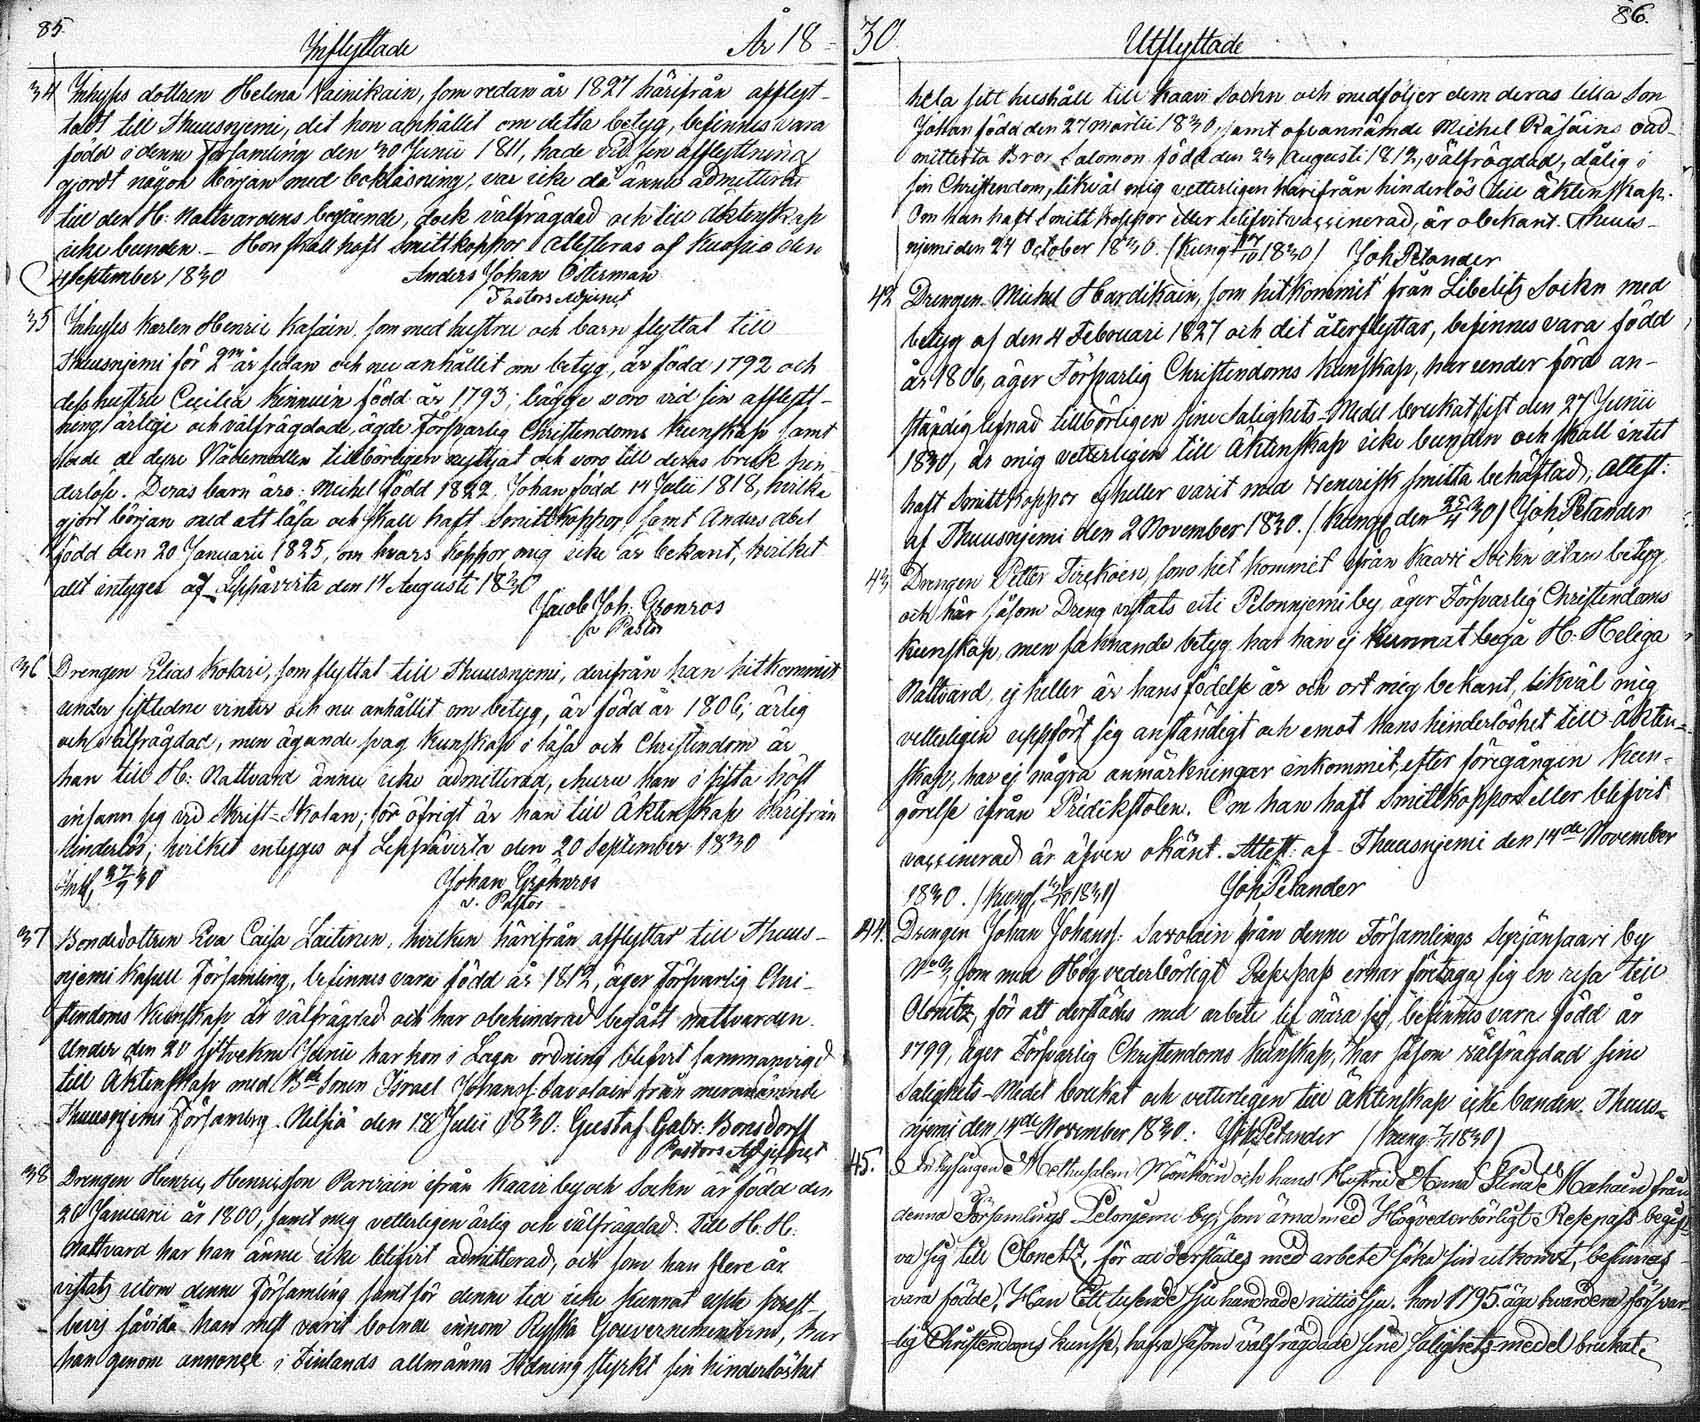 85.
Inflyttade År 18
34 Inhyses dottren Helena Vainikain, som redan år 1827 härifrån afflyt-
tadt till Thuusnjemi, dit hon anhållet om detta betyg, befinnes vara
född i denne Församling den 30 Junii 1811, hade vid sin afflyttning
gjordt någon början med bokläsning, var icke då ännu admitterad
till den H: Nattvardens begående, dock välfrägdad och till Äktenskap
icke bunden. – Hon skall haft Smittkoppor Attesteras af Kuopio den
4 September 1830 Anders Johan Österman
Pastors Adjunct
35 Inhyses karlen Henric Kasain, som med hustru och barn flyttat till
Thuusnjemi för 2ne år sedan och nu anhållit om betyg, är född 1792 och
dess hustru Cecilia Kinnuin född år 1793; bägge voro vid sin afflytt-
ning ärlige och välfrägdade, ägde Försvarlig Christendoms Kunskap samt
hade de dyre Nådemedlen tillbörligen nyttjat och voro till deras bruk hin-
derlöse. Deras barn äro: Michel född 1822, Johan född 14 Julii 1818, hvilka
gjort början med att läsa och skall haft Smittkoppor, samt Anders Abel
född den 20 Januarii 1825, om hvars koppor mig icke är bekant, hvilket
allt intyges af Leppävirta den 17 Augusti 1830
Jacob Joh: Grönros
v Pastor
36 Drengen Elias Kolari, som flyttat till Thuusnjemi, derifrån han hitkommit
under sistledne vinter och nu anhållit om betyg, är född år 1806; ärlig
och välfrägdad, men ägande svag kunskap i läsa och Christendom är
han till H: Nattvard ännu icke admitterad, ehuru han i sista höst
infann sig vid Skrift-Skolan; för öfrigt är han till Äktenskap härifrån
hinderlös; hvilket intyges af Leppävirta den 20 September 1830
27/9 30 Johan Gröhnros
v. Pastor
37 Bondedottren Eva Caisa Laitinen, hvilken härifrån afflyttar till Thuus-
njemi Kapell Församling, befinnes vara född år 1812, äger Försvarlig Chri-
stendoms Kunskap är välfrägdad och har obehindrad begått nattvarden.
Under den 20 sistvekne Junii har hon i Laga ordning blifvit sammanvigd
till Äktenskap med Bde Sonen Israel Johanss: Savolain från merommrörde
Thuusnjemi Församling. Nilsiä den 18 Julii 1830. Gustaf Gabr: Bonsdorff
Pastors Adjunct
38 Drengen Henric Henricsson Parviain ifrån Kaavi by och Sockn är född den
26 Januarii år 1800, samt mig vetterligen ärlig och välfrägdad. Till H: H:
Nattvard har han ännu icke blifvit admitterad, och som han flere år
vistats utom denne Församling samt för denne tid icke kunnat
såvida han mest varit boende innom Ryska Gouvernementerne, har
han genom annonce i Finlands allmänna Tidning styrkt sin hinderlöshet
86.
30. Utflyttade
hela sitt hushåll till Kaavi Sockn och medföljer dem deras lilla Son
Johan född den 27 Martii 1830, samt ofvannämde Michel Räsäins oad-
mitterta Bror Salomon född den 23 Augusti 1812, välfrägdad, dålig i
sin Christendom, likväl mig vetterligen härifrån hinderlös till äktenskap.
Om han haft Smittkoppor eller blifvit vaccinerad, är obekant. Thuus-
njemi den 24 October 1830. /Kung 1830/ Joh Petander
42 Drengen Michel Hardikain, som hitkommit från Libelitz Sockn med
betyg af den 4 Februari 1827 och dit återflyttar, befinnes vara född
år 1806, äger Försvarlig Christendoms Kunskap, har under förd an-
ständig lefnad tillbörligen sine Salighets-Medel brukat sist den 27 Junii
1830, är mig vetterligen till Äktenskap icke bunden och skall intet
haft Smittkoppor ej heller varit med Venerisk smitta behäftad; Attest:
af Thuusnjemi den 2 November 1830. /Kung den 30/ Joh Petander
43 Drengen Petter Tirkoin, som hit kommit ifrån Kaavi Sockn utan betyg,
och här såsom Dreng vistats uti Pelonnjemi by, äger Försvarlig Christendoms
Kunskap, men saknande betyg har han ej kunnat begå H: Heliga
Nattvard, ej heller är hans födelse år och ort mig bekant, likväl mig
vetterligen uppfört sig anständigt och emot hans hinderlöshet till äkten-
skap, har ej några anmärkningar inkommit, efter föregången kun-
görelse ifrån Predikstolen. Om han haft Smittkoppor eller blifvit
vaccinerad är äfven okänt. Attest: af Thuusnjemi den 14de November
1830. /Kung 1830/ Joh Petander
44. Drengen Johan Johanss: Savolain från denne Församlings Syrjänsaari by
No 3, som med Hög vederbörligt Respass ernar företaga sig en resa till
Olonetz, för att derstädes med arbete lif nära sig, befinnes vara född år
1799, äger Försvarlig Christendoms Kunskap, har såsom välfrägdad sine
Salighets-Medel brukat och vetterligen till Äktenskap icke bunden. Thuus-
njemi den 14de November 1830. Joh Petander /Kung: 1830/
45. Methusalem Mönköin och hans Hustru Anna Stina Mähöin från
denna Församlings Pelonjemi by, som ärna med Högvederbörligt Resepass begif-
va sig till Olonetz, för att derstädes med arbete söka sin utkomst, befinnas
vara födde, Han Ett tusende sju hundrade nittio sju, hon 1795. äga hvardera försvar-
lig Christendoms kunsk, hafva såsom välfrägdade sine salighets medel brukat